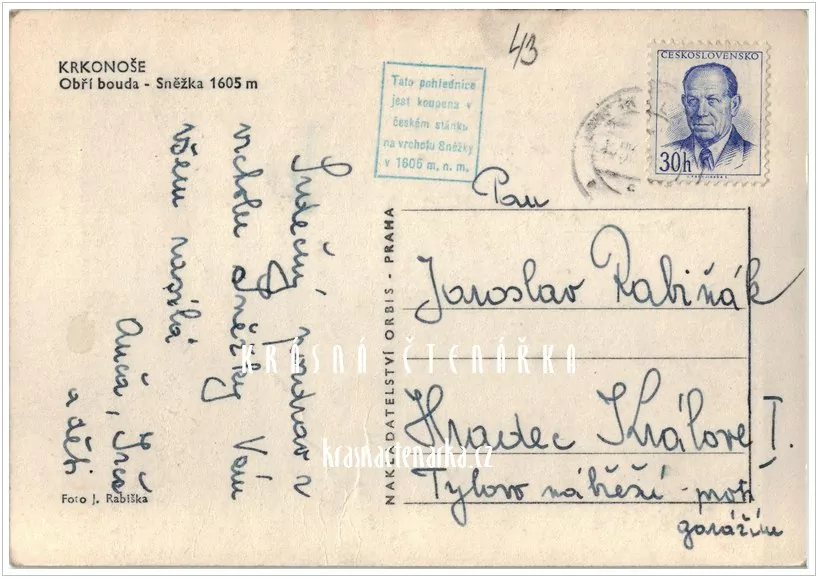 KRKONOŠE
Obří bouda - Sněžka 1605 m
43
Tato pohlednice
jest koupena v
českém stánku
na vrcholu Sněžky
v 1605 m. n. m.
ČESKOSLOVENSKO
30h
Srdečný pozdrav z
vrcholu Sněžky Vám
všem zasílá
a děti
Foto J. Rabiška
NAKLADATELSTVÍ ORBIS - PRAHA
Pan
Jaroslav Rabiňák
Hradec Králové I.
Tylovo nábřeží - proti
garážím
KRÁSNÁ ČTENÁŘKA
krasnactenarka.cz